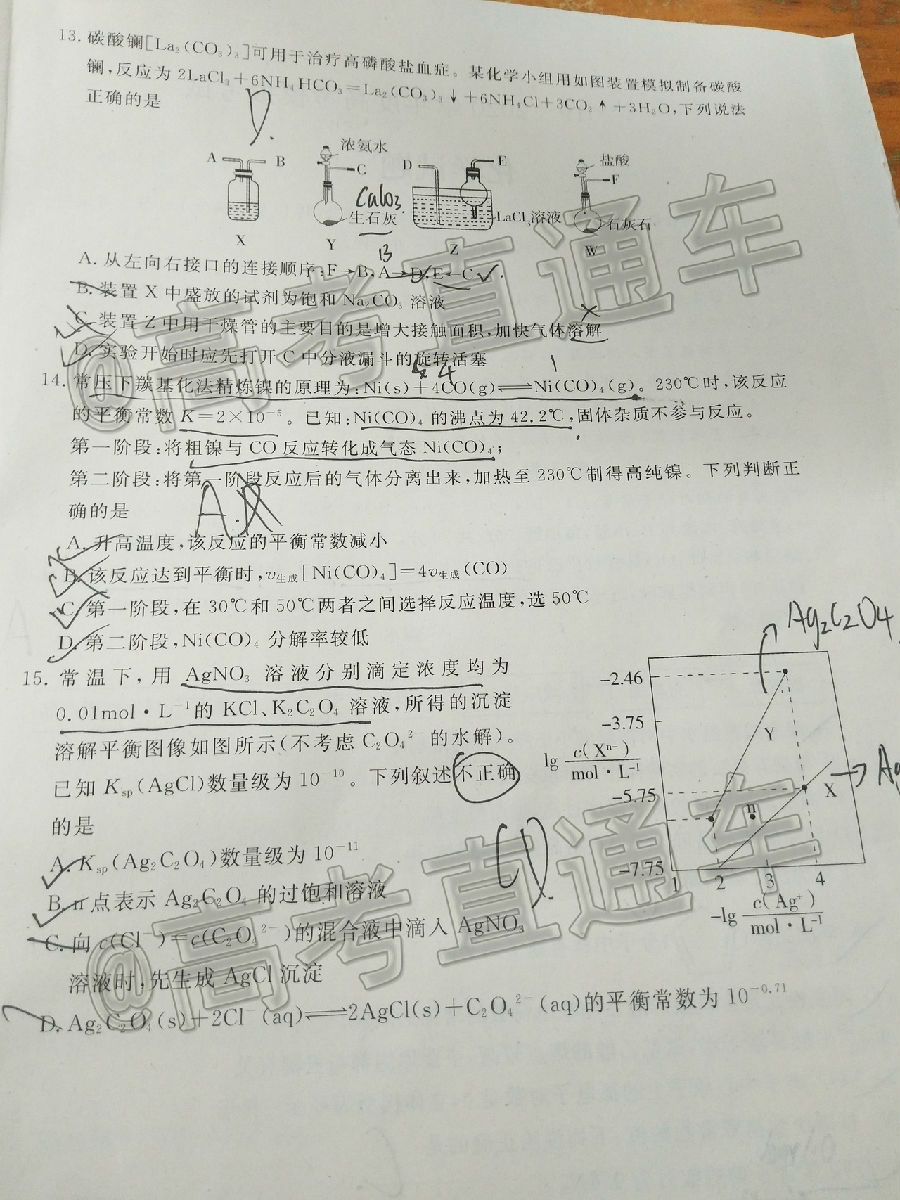 13. 碳酸镧[La₂(CO₃)₃]可用于治疗高磷酸盐血症。某化学小组用如图装置模拟制备碳酸
镧,反应为2LaCl₃+6NH₄HCO₃=La₂(CO₃)₃↓+6NH₄Cl+3CO₂↑+3H₂O,下列说法
正确的是
D.
A B
浓氨水
C
D E
盐酸
F
CaCO3
生石灰
LaCl₃溶液
石灰石
X Y Z W
B
A. 从左向右接口的连接顺序:F→B,A→D,E←C
B. 装置X中盛放的试剂为饱和Na₂CO₃溶液
C. 装置Z中用干燥管的主要目的是增大接触面积,加快气体溶解
D. 实验开始时应先打开C中分液漏斗的旋转活塞
4 1
14. 常压下羰基化法精炼镍的原理为:Ni(s)+4CO(g)⇌Ni(CO)₄(g)。230℃时,该反应
的平衡常数K=2×10⁻⁵。已知:Ni(CO)₄的沸点为42.2℃,固体杂质不参与反应。
第一阶段:将粗镍与CO反应转化成气态Ni(CO)₄;
第二阶段:将第一阶段反应后的气体分离出来,加热至230℃制得高纯镍。下列判断正
确的是
A.
A. 升高温度,该反应的平衡常数减小
B. 该反应达到平衡时,v生成[Ni(CO)₄]=4v生成(CO)
C. 第一阶段,在30℃和50℃两者之间选择反应温度,选50℃
D. 第二阶段,Ni(CO)₄分解率较低
15. 常温下,用AgNO₃溶液分别滴定浓度均为
0.01mol·L⁻¹的KCl、K₂C₂O₄溶液,所得的沉淀
溶解平衡图像如图所示(不考虑C₂O₄²⁻的水解)。
已知Ksp(AgCl)数量级为10⁻¹⁰。下列叙述不正确
的是
A. Ksp(Ag₂C₂O₄)数量级为10⁻¹¹
B. n点表示Ag₂C₂O₄的过饱和溶液
C. 向c(Cl⁻)=c(C₂O₄²⁻)的混合液中滴入AgNO₃
溶液时,先生成AgCl沉淀
D. Ag₂C₂O₄(s)+2Cl⁻(aq)⇌2AgCl(s)+C₂O₄²⁻(aq)的平衡常数为10⁻⁰·⁷¹
Ag2C2O4
−2.46
−3.75
lg c(Xⁿ⁻)/mol·L⁻¹
−5.75
−7.75
Y
X
n
Ag
1 2 3 4
−lg c(Ag⁺)/mol·L⁻¹
@高考直通车
@高考直通车